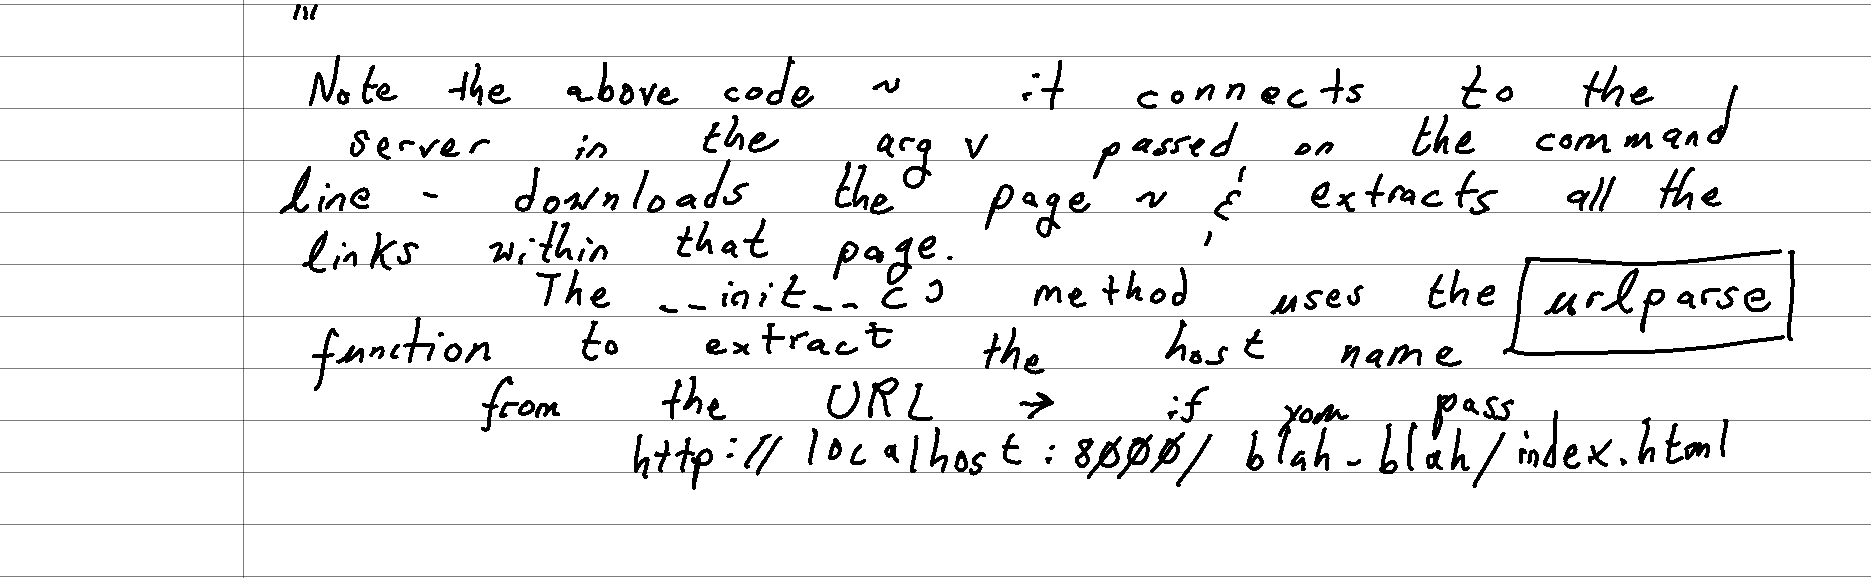 '''
Note the above code ~ it connects to the
server in the argv passed on the command
line - downloads the page ~ & extracts all the
links within that page.
The __init__() method uses the urlparse
function to extract the host name
from the URL → if you pass
http://localhost:8000/blah-blah/index.html